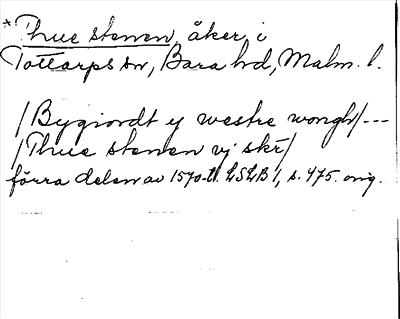 * Thue stenen, åker i
Tottarps sn, Bara hd, Malm. l.
/Bygiordt y westre wongh/---
/Thue stenen vj skr/
förra delen av 1570-t. LSLB 1, s. 475. orig.